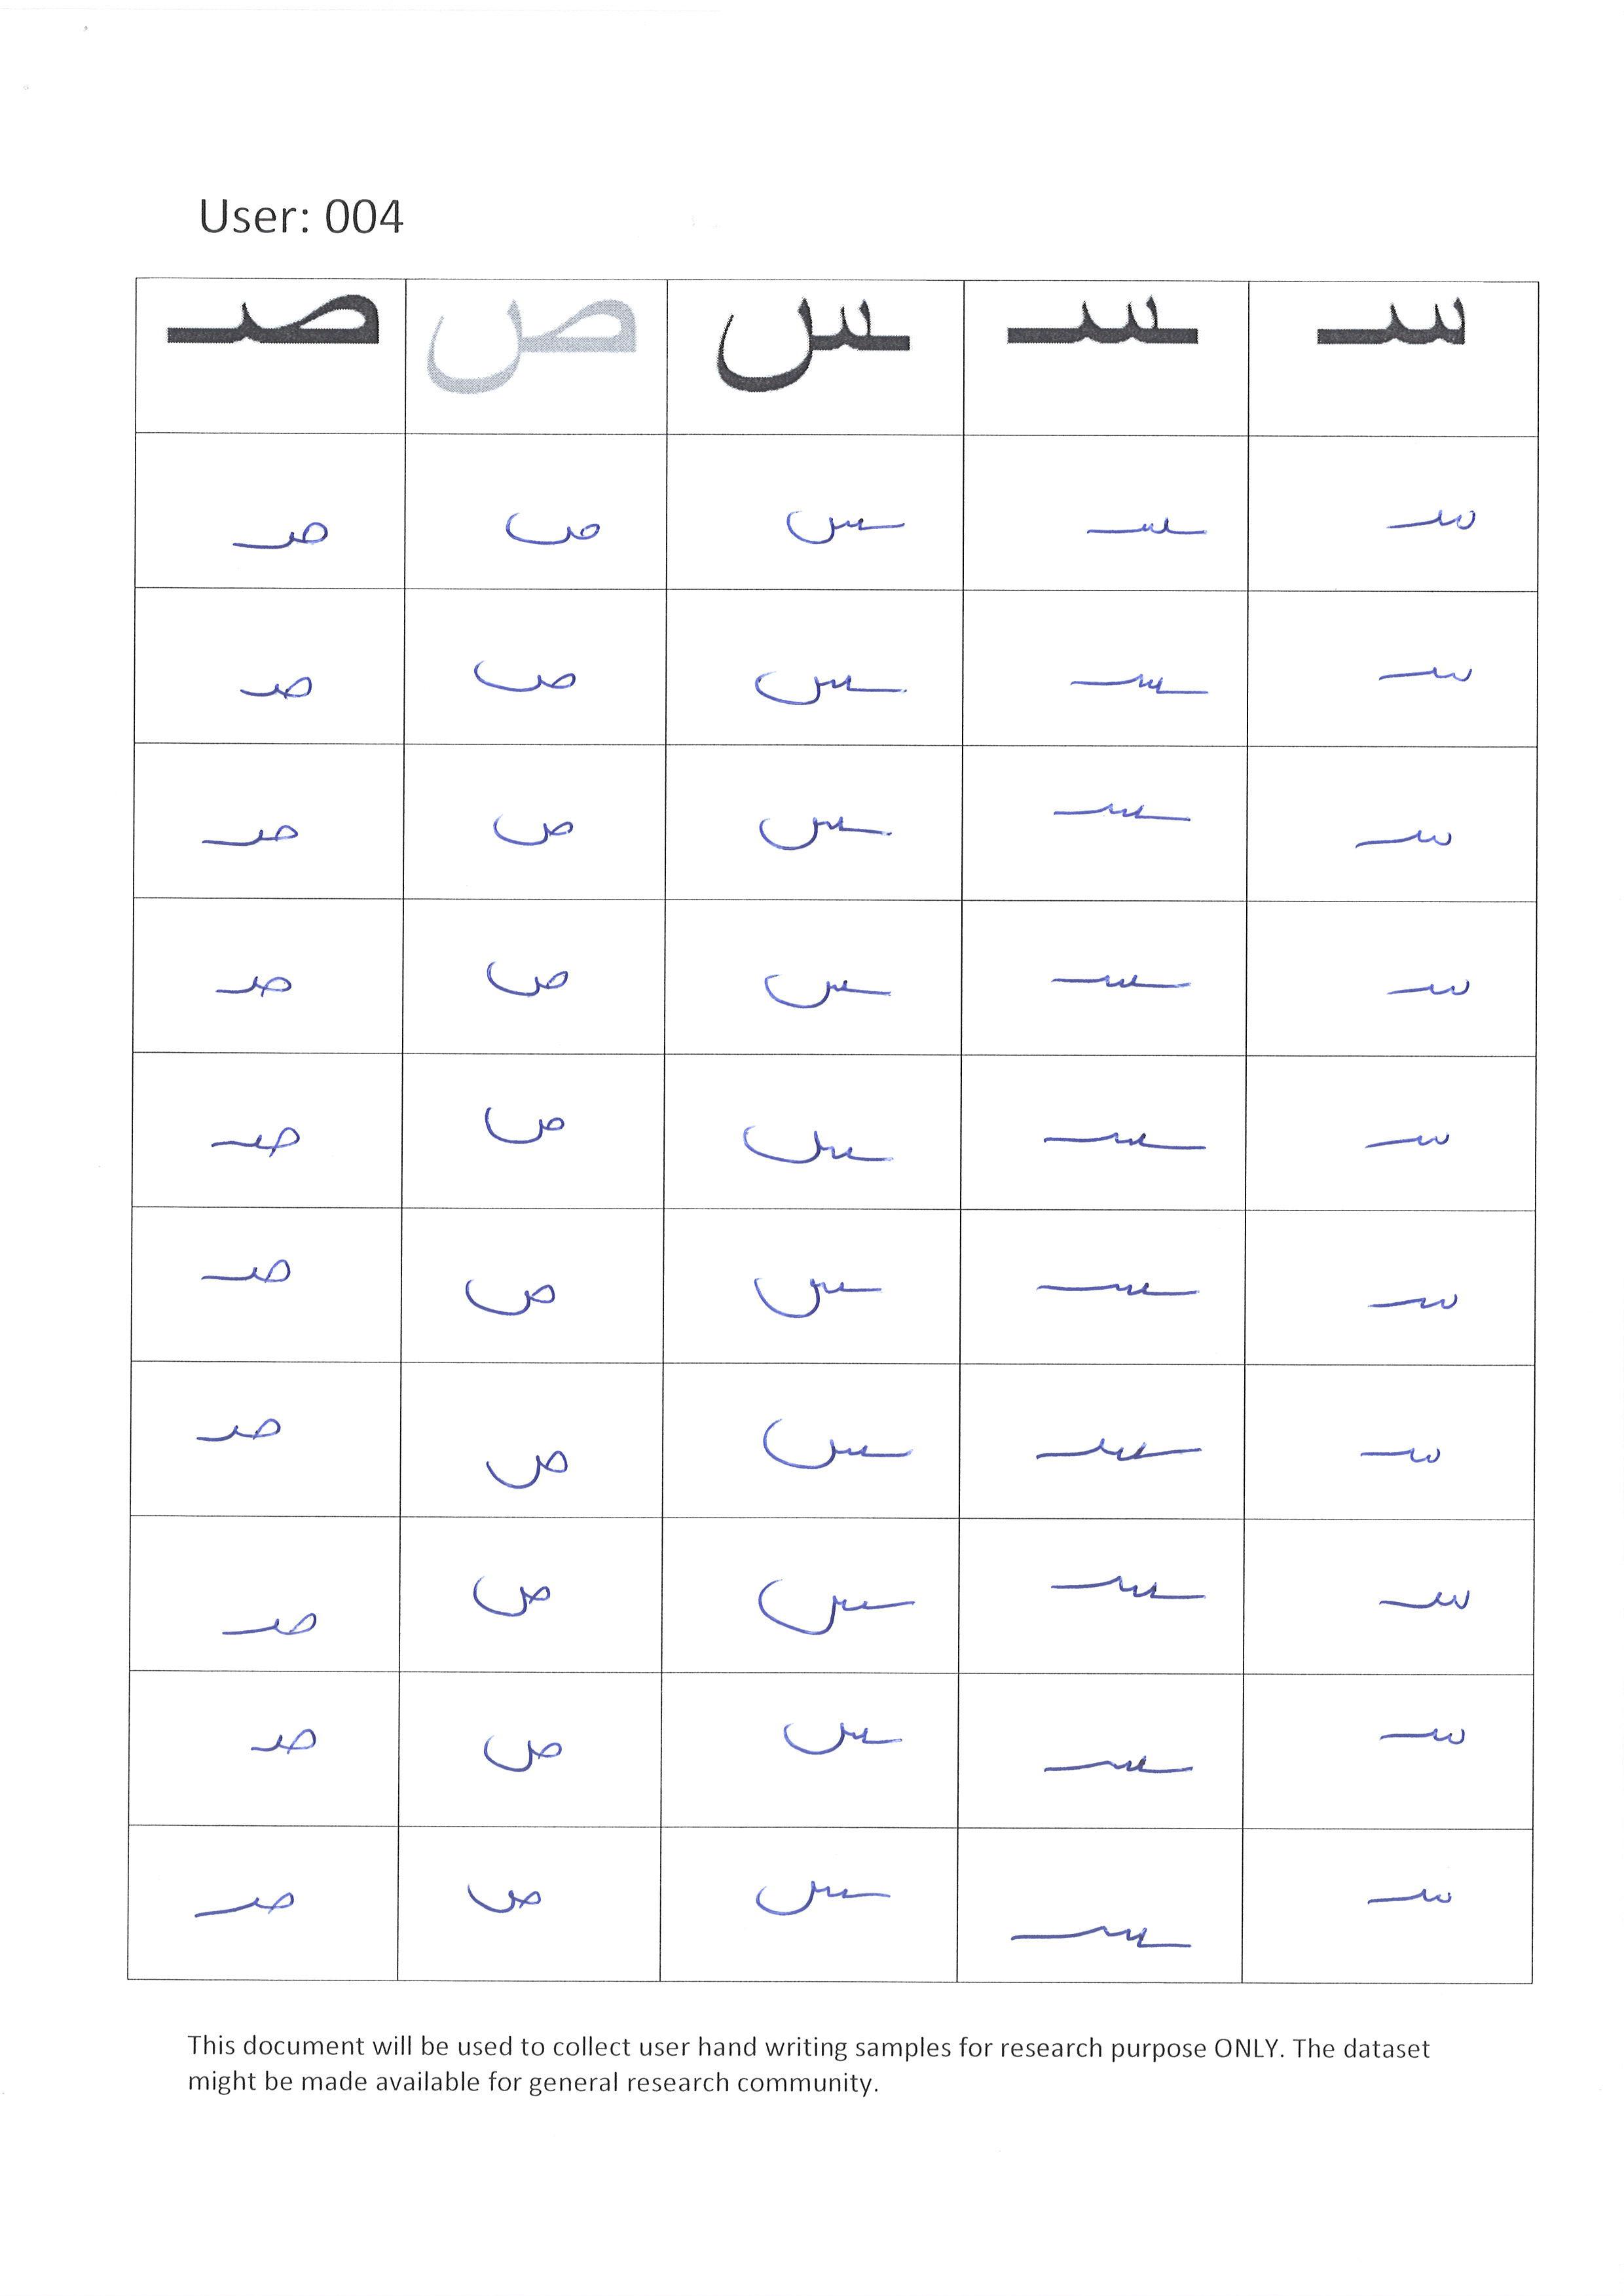 User: 004
سـ ـسـ ـس ص صـ
سـ ـسـ ـس ص صـ
سـ ـسـ ـس ص صـ
سـ ـسـ ـس ص صـ
سـ ـسـ ـس ص صـ
سـ ـسـ ـس ص صـ
سـ ـسـ ـس ص صـ
سـ ـسـ ـس ص صـ
سـ ـسـ ـس ص صـ
سـ ـسـ ـس ص صـ
سـ ـسـ ـس ص صـ
This document will be used to collect user hand writing samples for research purpose ONLY. The dataset
might be made available for general research community.